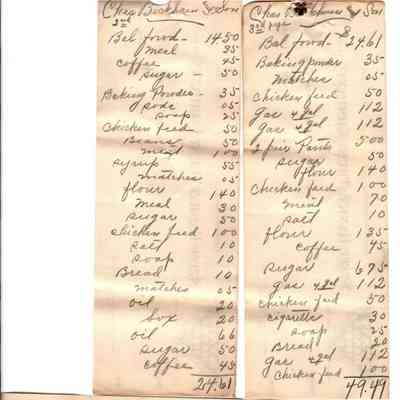 Chas Beckham & Son
3rd
Bal forod - 14.50
meal 35
coffee 45
sugar - 50
Baking Powder - 35
soda 05
soap 25
Chicken feed 50
Beans 50
meat 1 00
syrup 55
matches 05
flour 1 40
Meal 30
sugar 50
chicken feed 1 00
salt 10
soap 10
Bread 10
matches 05
oil 20
box 20
oil 66
sugar 50
coffee 45
24.61
Chas & Son
3rd Page
Bal forod - 24.61
Baking powder 35
Matches 05
chicken feed 50
Gas 4 gal 1 12
Gas 4 gal 1 12
2 pair Pants 5 00
sugar 50
flour 1 40
Chicken feed 1 00
meat 70
salt 10
flour 1 35
coffee 45
sugar 6 75
gas 4 gal 1 12
chicken feed 50
cigarette 30
soap 25
Bread 20
gas 4 gal 1 12
chicken feed 1 00
49.49